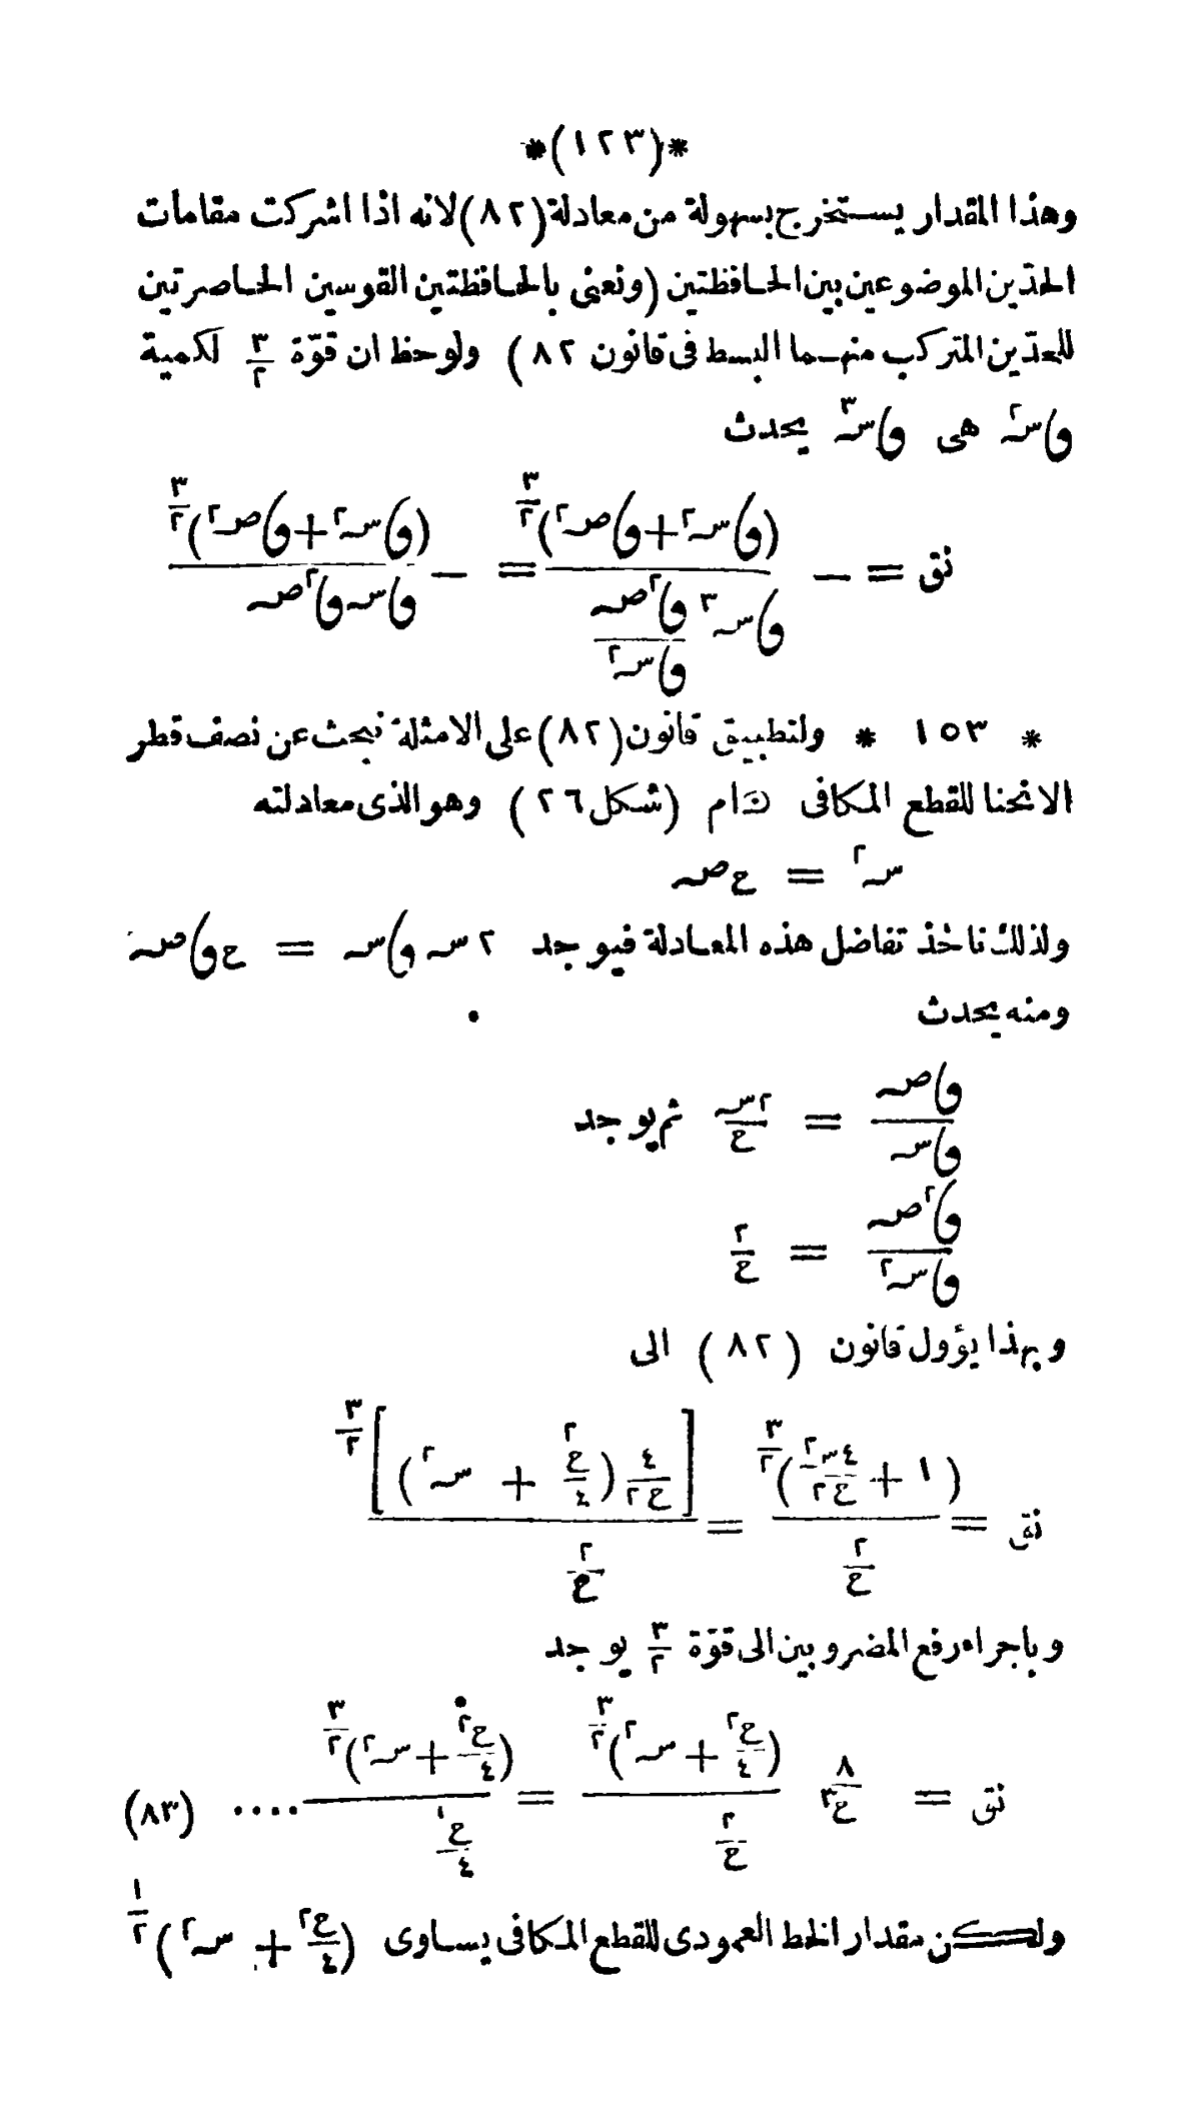 *(١٢٣)*
وهذا المقدار يستخرج بسهولة من معادلة (٨٢) لانه اذا اشركت مقامات
الحدّين الموضوعين بين الحافظتين (ونعنى بالحافظتين القوسين الحاصرتين
للحدّين المتركب منهما البسط فى قانون ٨٢) ولوحظ ان قوّة ٣/٢ لكمية
ڡاسـ٢ هى ڡاسـ٣ يحدث
نق = − (ڡاسـ٢+ڡاصـ٢)^(٣/٢) / (ڡاسـ٣ ڡا٢صـ/ڡاسـ٢) = − (ڡاسـ٢+ڡاصـ٢)^(٣/٢) / ڡاسـڡا٢صـ
* ١٥٣ * ولتطبيق قانون (٨٢) على الامثلة نبحث عن نصف قطر
الانحنا للقطع المكافى ام (شكل ٢٦) وهو الذى معادلته
سـ٢ = ح صـ
ولذلك ناخذ تفاضل هذه المعادلة فيوجد ٢سـ ڡاسـ = ح ڡاصـ
ومنه يحدث
ڡاصـ/ڡاسـ = ٢سـ/ح ثم يوجد
ڡا٢صـ/ڡاسـ٢ = ٢/ح
وبهذا يؤول قانون (٨٢) الى
نق = (١ + ٤سـ٢/ح٢)^(٣/٢) / (٢/ح) = [٤/ح٢ (ح٢/٤ + سـ٢)]^(٣/٢) / (٢/ح)
وباجراء رفع المضروبين الى قوّة ٣/٢ يوجد
نق = ٨/ح٣ (ح٢/٤ + سـ٢)^(٣/٢) / (٢/ح) = (ح٢/٤ + سـ٢)^(٣/٢) / (ح٢/٤) .... (٨٣)
ولكن مقدار الخط العمودى للقطع المكافى يساوى (ح٢/٤ + سـ٢)^(١/٢)